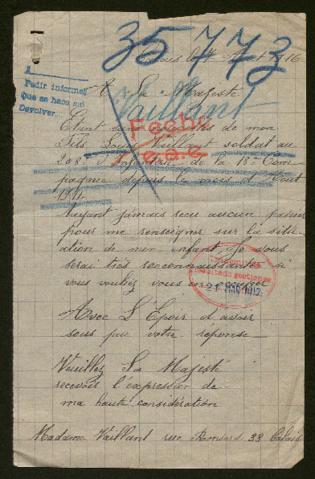 35773
1916
A
Pedir informes
que se hace sin
Devolver
A Sa Majesté
Vaillant
Fecho
Etant sans de mon
Fils Louis Vaillant soldat au
208 d'Infanterie de la 18e Com
pagnie depuis le mois d'Août
1914
Ayant jamais reçu aucun
pour me renseigner sur la situ
ation de mon enfant je vous
serai très reconnaissante si
vous vouliez vous en
Avec l'Espoir d'avoir
sous peu votre réponse
Veuillez Sa Majesté
recevoir l'expression de
ma haute considération
Madame Vaillant rue Ronsard 38 Calais